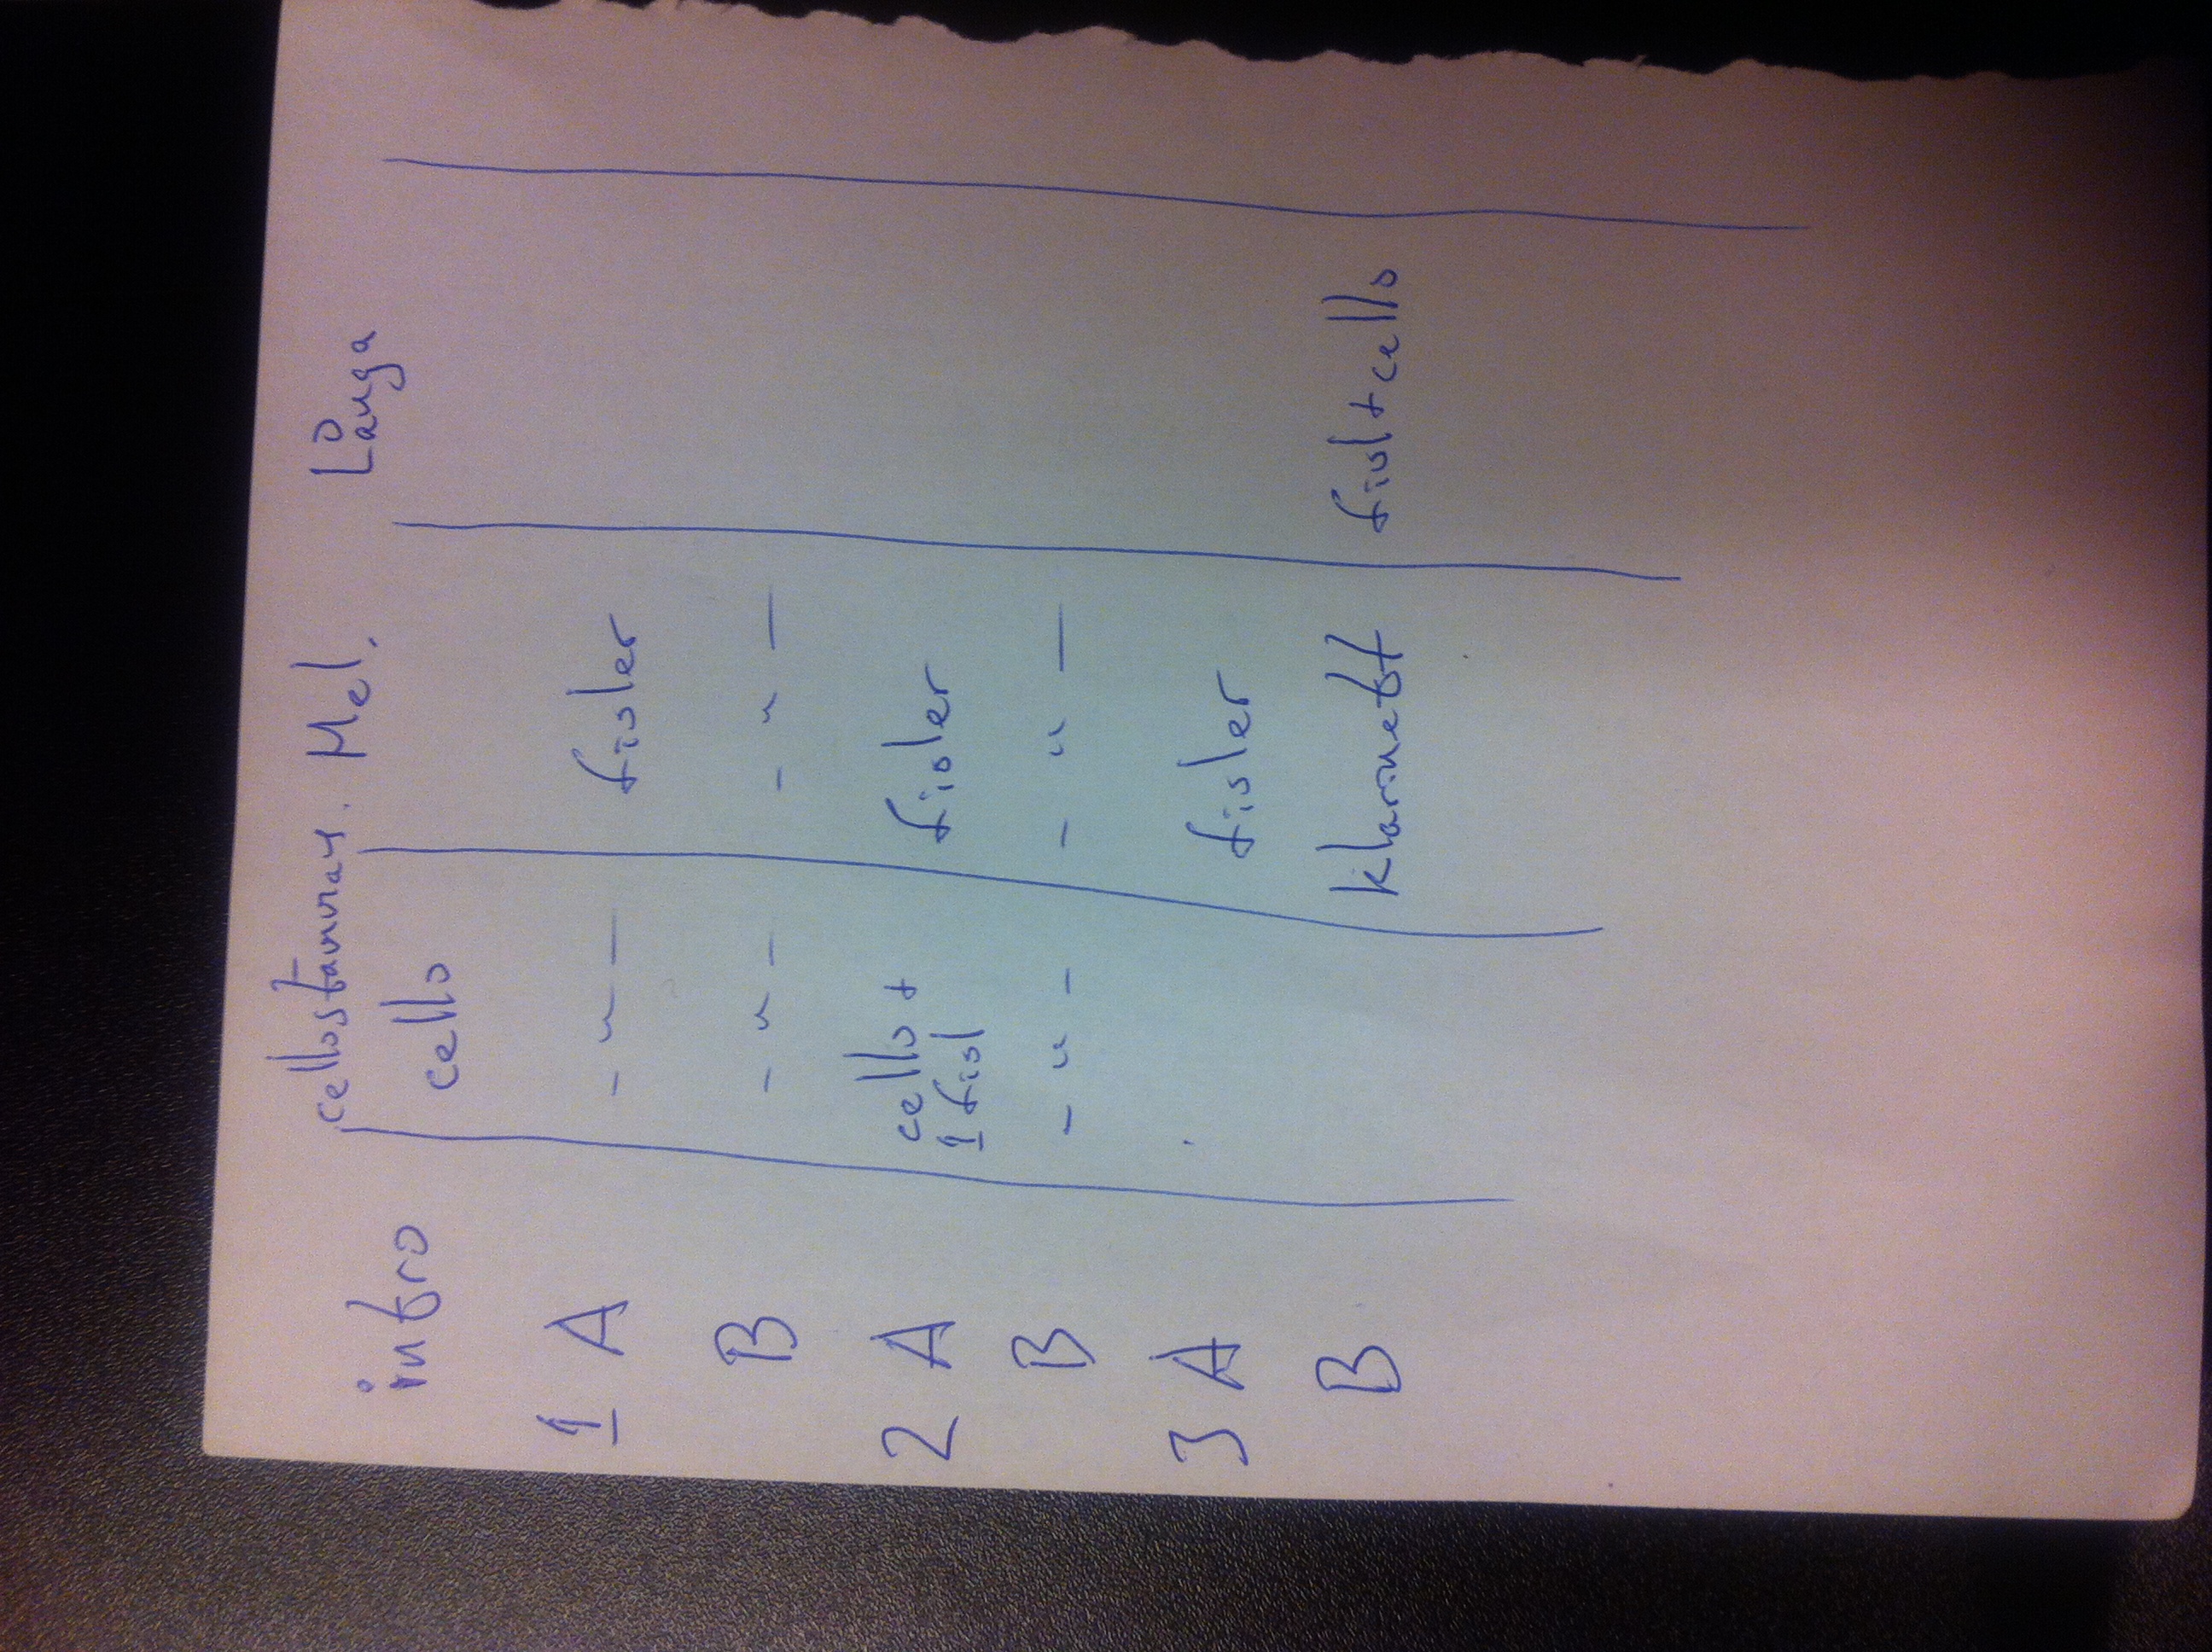 cellostämman. Mel. Långa
intro cello
1 A - " - fioler
B - " - - " -
2 A cello + fioler
1 fiol
B - " - - " -
3 A fioler
B klarinett fiol+cello